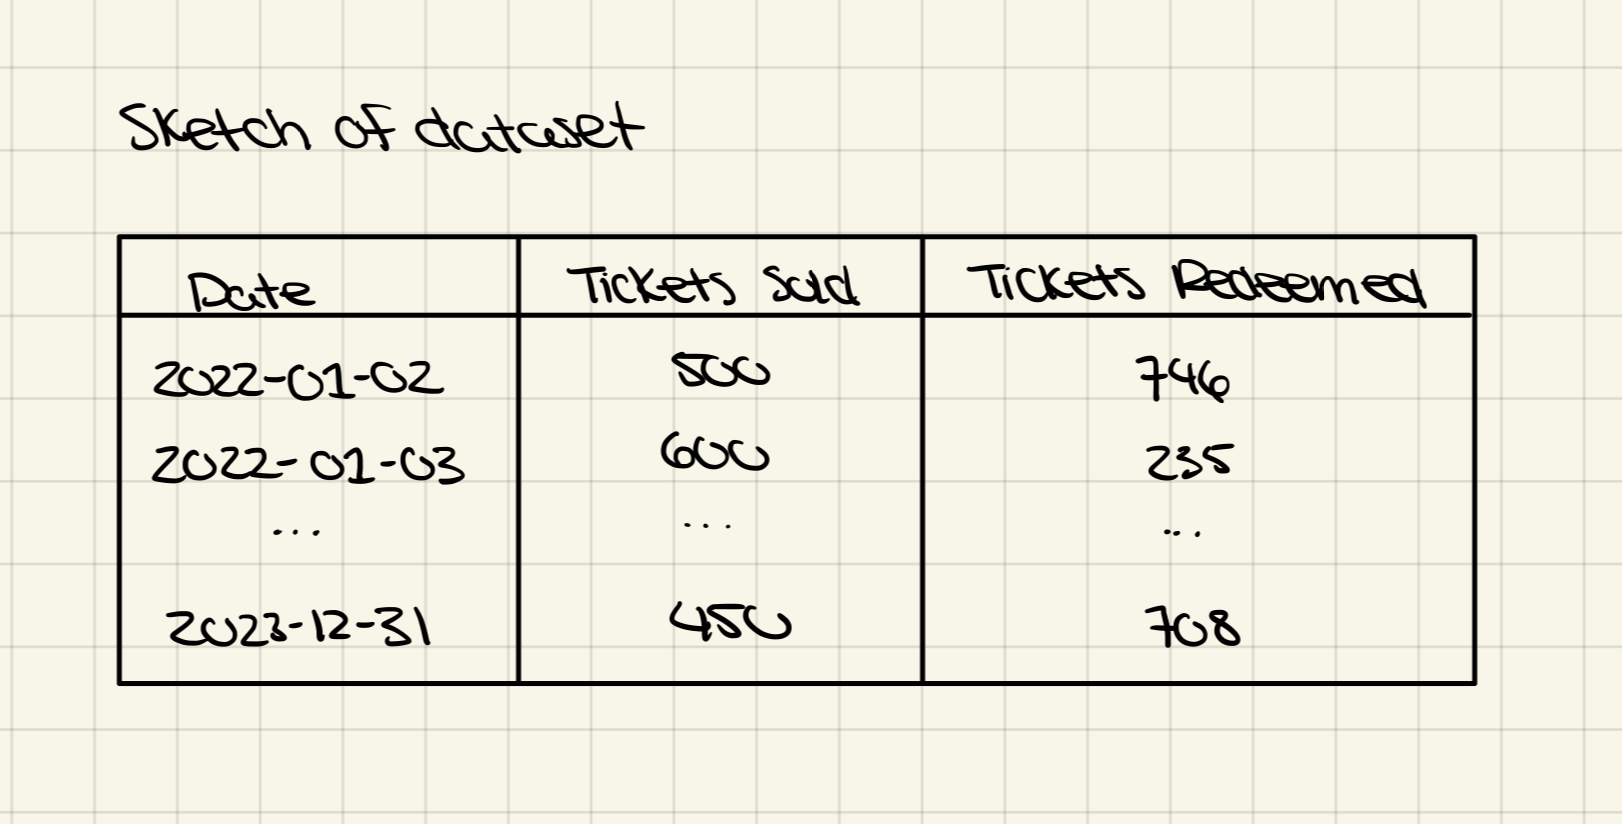 Sketch of dataset
Date Tickets Sold Tickets Redeemed
2022-01-02 500 746
2022-01-03 600 235
... ... ...
2023-12-31 450 708